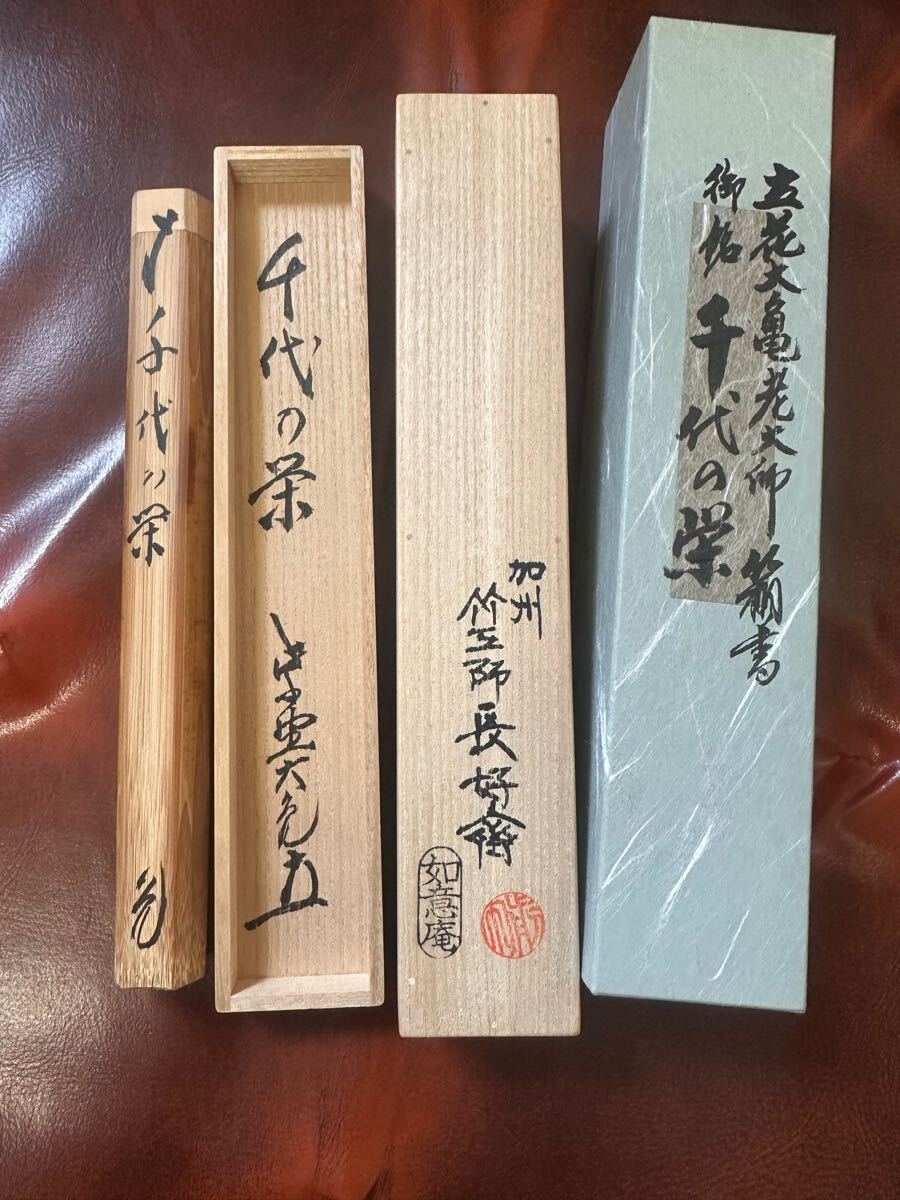 千代の栄
千代の栄
加州
竹工師 長好斎
如意庵
立花大亀老大師 箱書
御銘 千代の栄